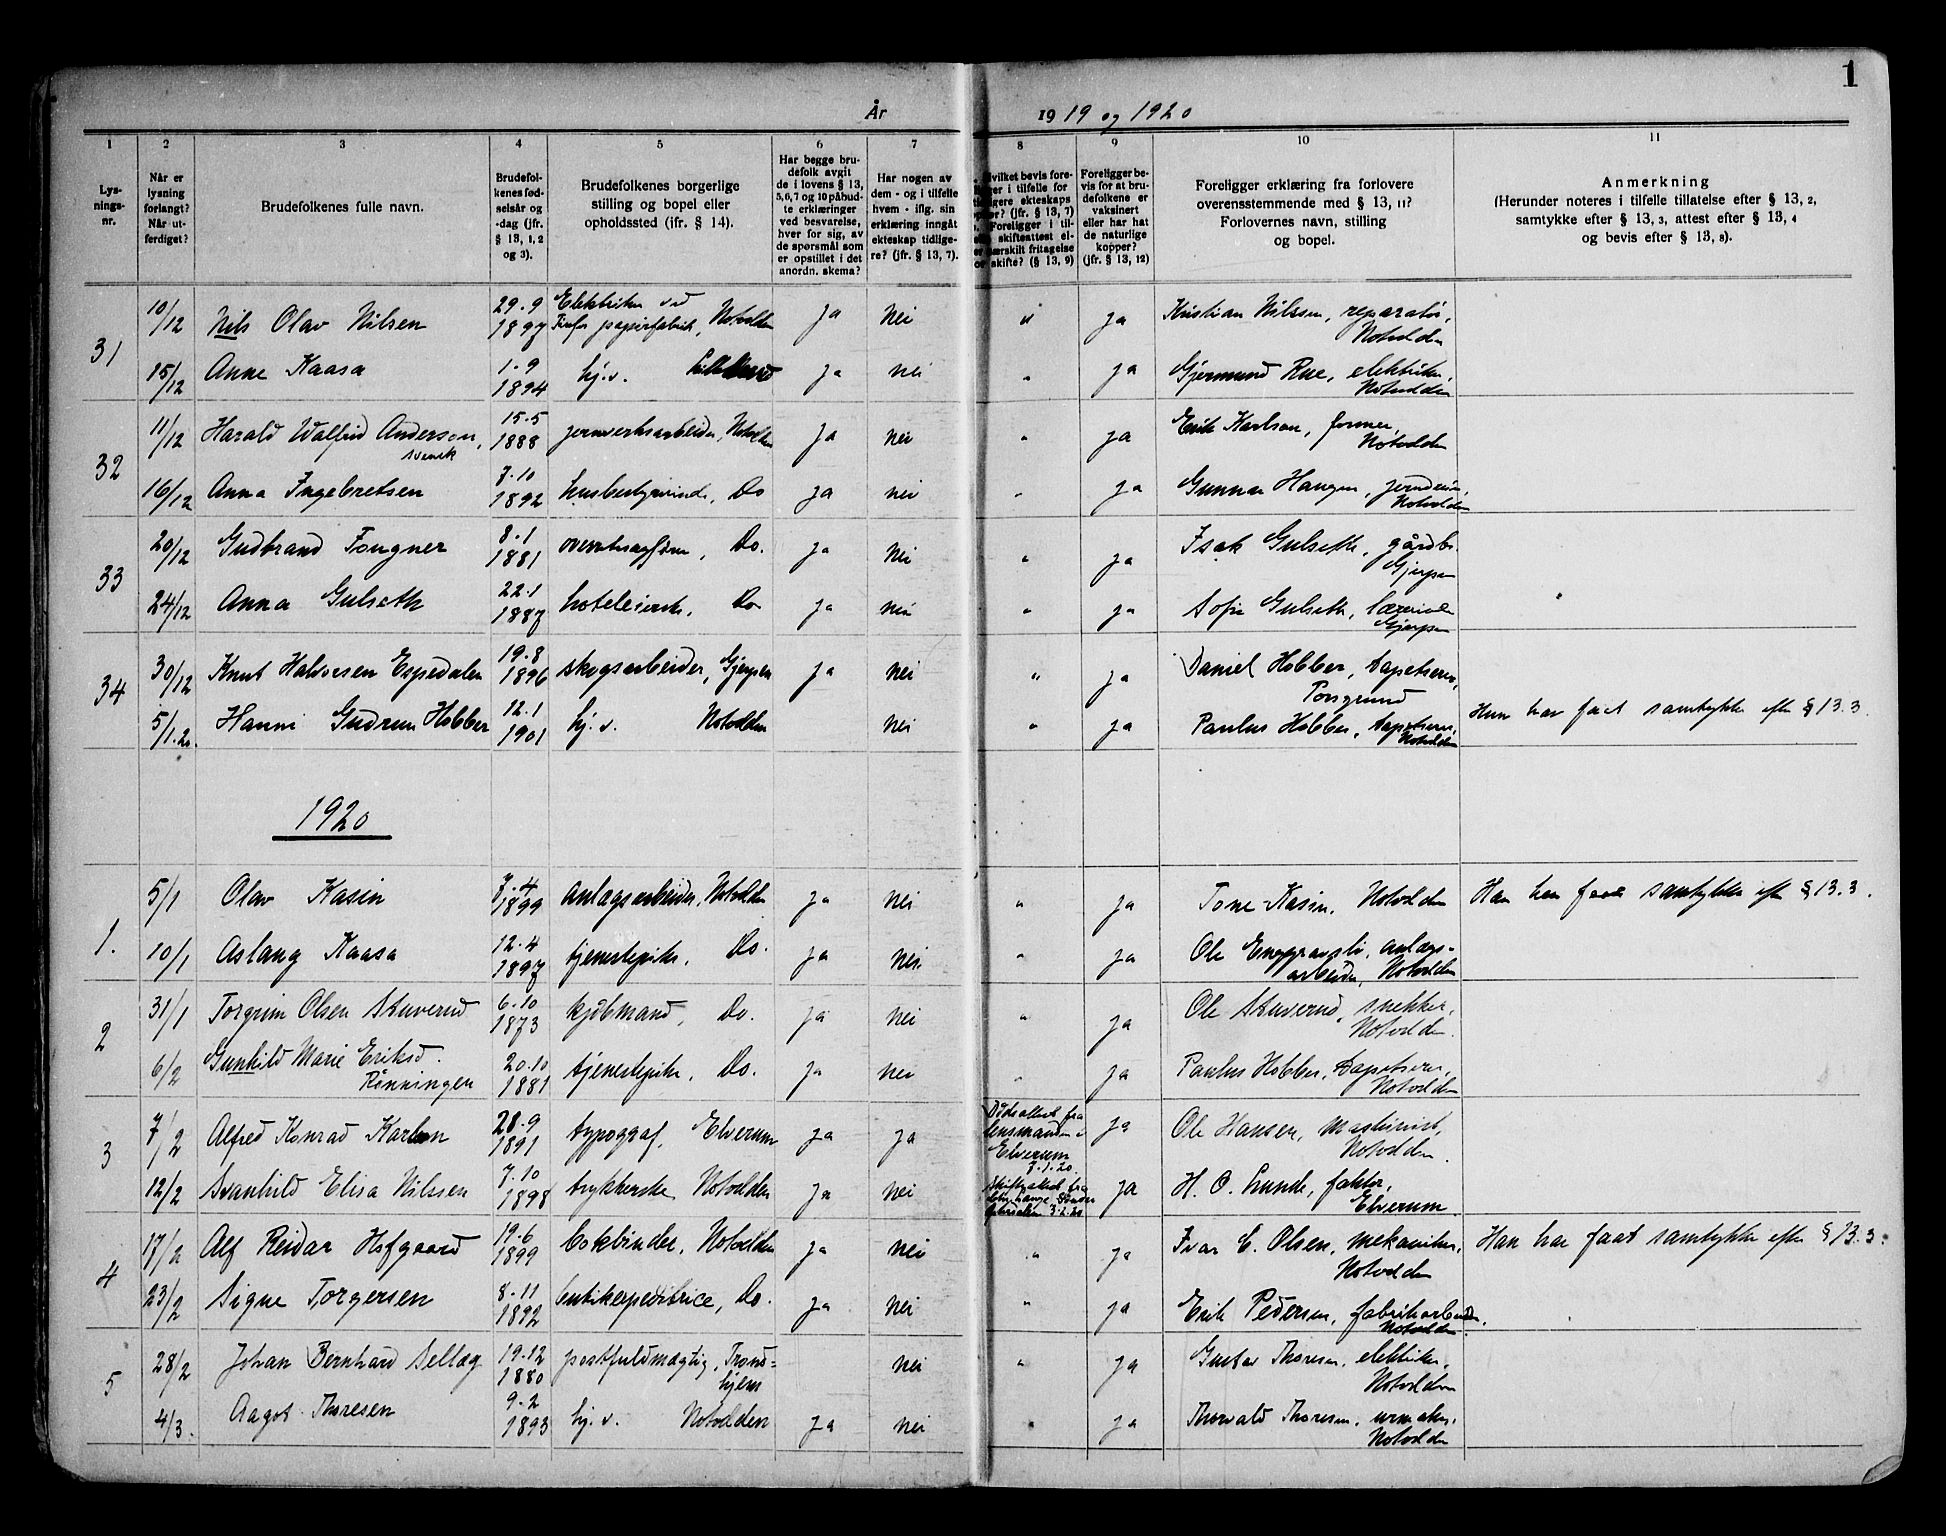 1
År 1919 og 1920
1 2 3 4 5 6 7 8 9 10 11
Lys-
nings-
nr.
Når er
lysning
forlangt?
Når ut-
ferdiget?
Brudefolkenes fulle navn.
Brudefol-
kenes fød-
selsår og
-dag (jfr.
§ 13, 1, 2
og 3).
Brudefolkenes borgerlige
stilling og bopel eller
opholdssted (ifr. § 14).
Har begge bru-
defolk avgit
de i lovens § 13,
5,6,7 og 10 påbud-
te erklæringer
ved besvarelse,
hver for sig, av
de spørsmål som
er opstillet i det
anordn. skema?
Har nogen av
dem - og i tilfelle
hvem - iflg. sin
erklæring inngåt
ekteskap tidlige-
re? (jfr. § 13, 7).
Hvilket bevis fore-
er i tilfelle for
igere ekteskaps
? (jfr. § 13, 7)
Foreligger i til-
skifteattest el-
særskilt fritagelse
for skifte? (§ 13, 9)
Foreligger be-
vis for at bru-
defolkene er
vaksinert
eller har hat
de naturlige
kopper?
(jfr. § 13, 12)
Foreligger erklæring fra forlovere
overensstemmende med § 13, 11?
Forlovernes navn, stilling
og bopel.
Anmerkning
(Herunder noteres i tilfelle tillatelse efter § 13, 2,
samtykke efter § 13, 3, attest efter § 13, 4
og bevis efter § 13, 8).
31 10/12 Nils Olav Nilsen 29.9 1897 Elektriker ved
Tinfos papirfabrik, Notodden ja Nei " ja Kristian Nilssen, reparatør,
Notodden
15/12 Anne Kaasa 1.9 1894 hj.v. ja nei " ja Gjermund Rue, elektriker,
Notodden
32 11/12 Harald Walfrid Anderson,
svensk 15.5 1888 jernverksarbeider, Notodden ja nei " ja Erik Karlson, former,
Notodden
16/12 Anna Ingebretsen 7.10 1892 husbestyrerinde, Do ja nei " ja Gunnar Haugen,
Notodden
33 20/12 Gudbrand Fougner 8.1 1881 overretssagfører, Do. ja Nei " ja Isak Gulseth, gårdbr.
Gjerpen
24/12 Anna Gulseth 22.1 1887 hoteleierske, Do ja nei " ja Sofie Gulseth, lærerinde
Gjerpen
34 30/12 Knut Halvorsen Espedalen 19.8 1896 skogsarbeider, Gjerpen ja nei " ja Daniel Hobber, tapetserer,
Porsgrund
5/1.20. Hanni Gudrun Hobber 12.1 1901 hj.v. Notodden nei " ja Paulus Hobber, tapetserer,
Notodden Hun har faat samtykke efter § 13.3.
1920
1. 5/1 Olav Kasin 7.4 1899 anlægsarbeider, Notodden ja nei " ja Tone Kasin, Notodden Han har faat samtykke efter § 13.3.
10/1 Aslaug Kaasa 12.4 1897 tjenestepike, Do. ja nei. " ja Ole anlægs-
arbeider, Notodden
2 31/1 Torgrim Olsen Stuverud 6.10 1873 kjøbmand, Do. ja nei " ja Ole Stuverud, snekker,
Notodden.
6/2 Gunhild Marie Eriksd.
Rønningen 20.10 1881 tjenestepike, Do. ja nei " ja Paulus Hobber, tapetserer,
Notodden
3 7/2 Alfred Konrad Karlsen 28.9 1891 typograf, Elverum ja ja Dødsattest fra
lensmanden i
Elverum
7.1.20. ja Ole Hansen, maskinist,
Notodden.
12/2 Svanhild Elisa Nilssen 7.10 1898 trykkerske, Notodden ja nei Skifteattest fra
3.2.20 ja H. O. Lunde, faktor,
Elverum.
4 17/2 Alf Reidar Hofgaard 19.6 1899 bokbinder, Notodden ja nei " ja Ivar C. Olsen, mekaniker,
Notodden Han har faat samtykke efter § 13.3.
23/2 Signe Torgersen 8.11 1892 butikexpeditrice, Do. ja nei " ja Erik Pedersen, fabrikarbeider,
Notodden
5 28/2 Johan Bernhard Sellæg 19.12 1880 postfuldmægtig, Trond-
hjem nei " ja Gustav Thoresen, elektriker,
Notodden
4/3. Aagot Thoresen 9.2 1893 hj.v. Notodden ja nei " ja Thorvald Thoresen, urmaker,
Notodden